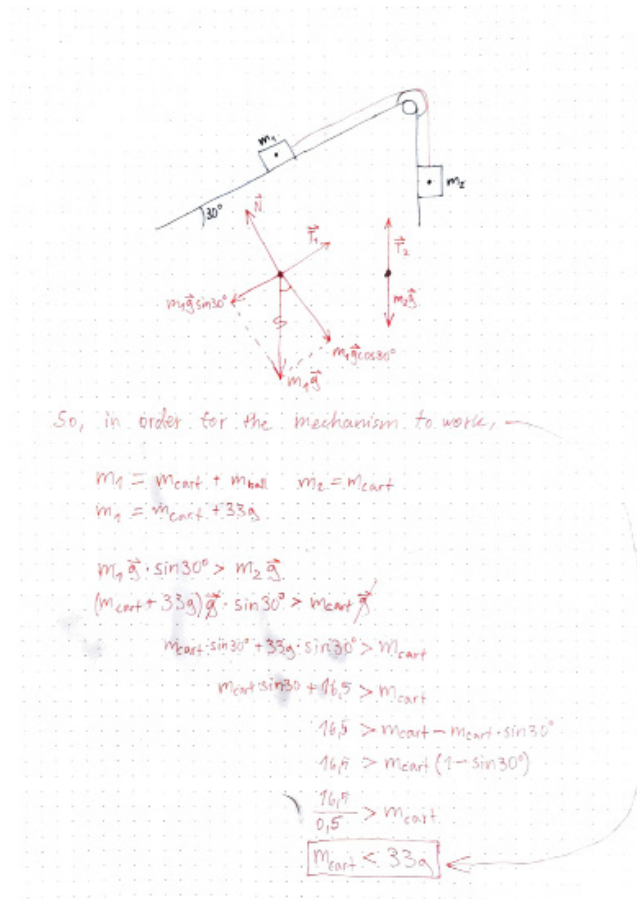 m₁
m₂
30°
N⃗
T⃗₁
T⃗₂
m₁g⃗sin30°
m₂g⃗
m₁g⃗cos30°
m₁g⃗
So, in order for the mechanism to work,
m₁ = mcart + mball m₂ = mcart
m₁ = mcart + 33g
m₁g⃗·sin30° > m₂g⃗
(mcart + 33g)g⃗·sin30° > mcart g⃗
mcart·sin30° + 33g·sin30° > mcart
mcart·sin30 + 16,5 > mcart
16,5 > mcart - mcart·sin30°
16,5 > mcart (1 - sin30°)
16,5/0,5 > mcart
mcart < 33g